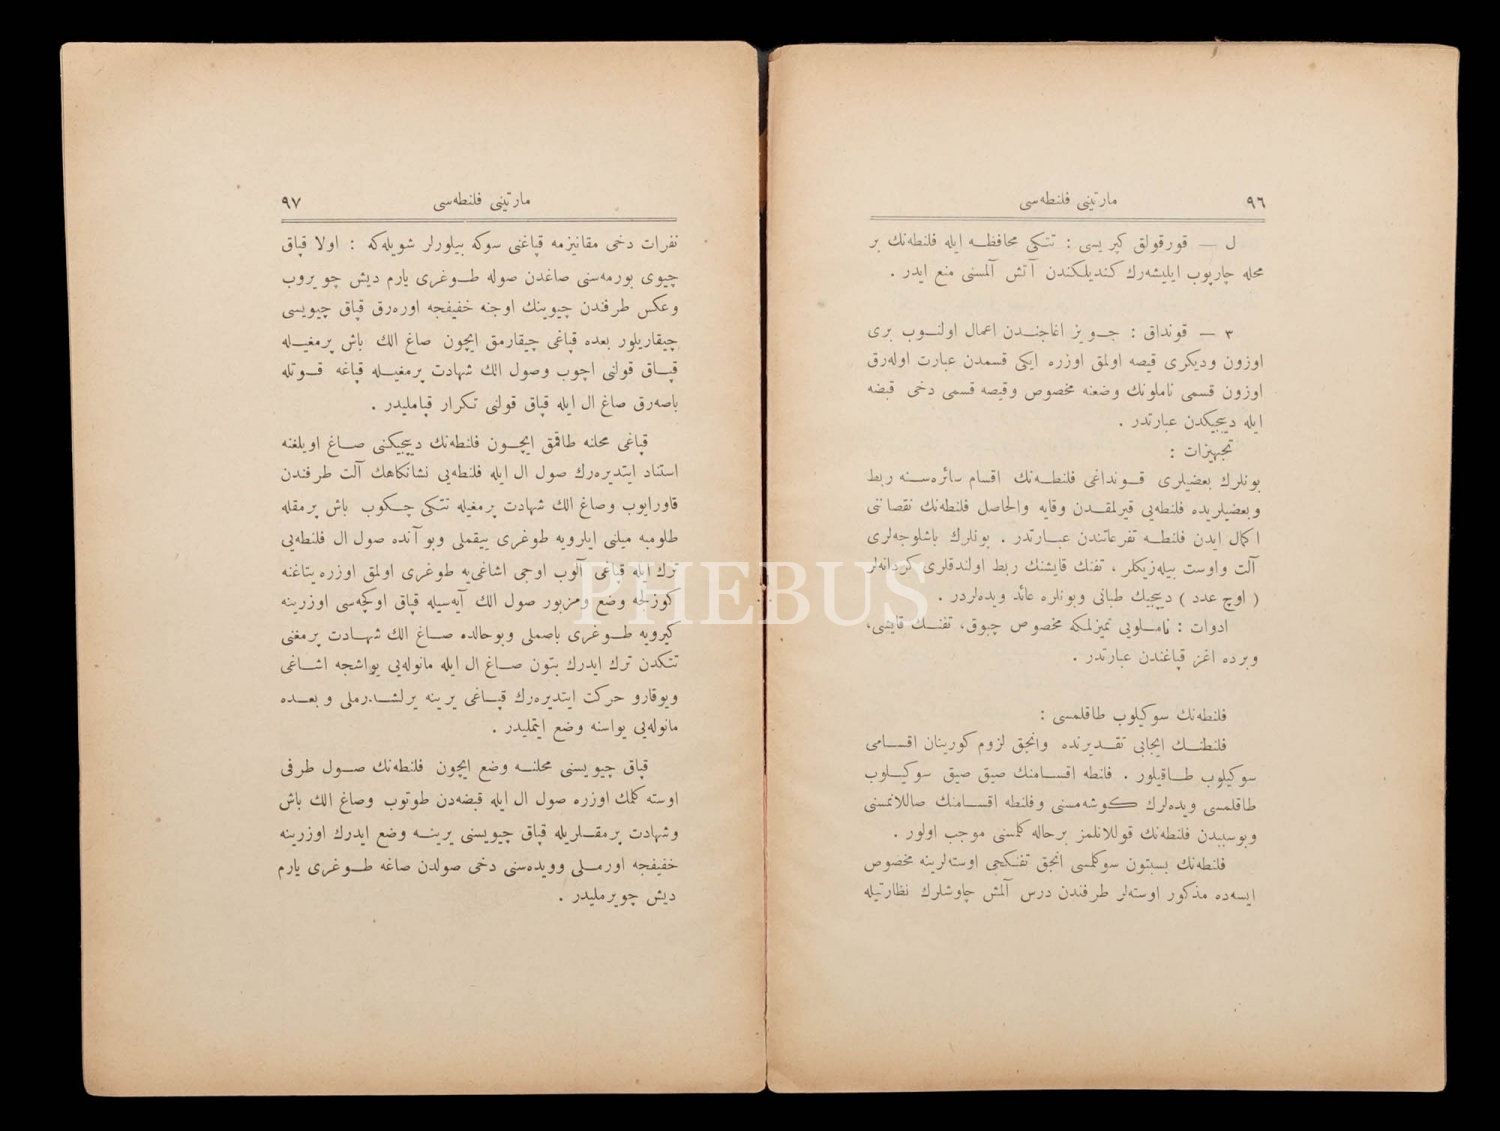 ٩٦
مارتینی فلنطه‌سی
ل — قورقولق کپریسی : تتکی محافظه ایله فلنطه‌نك بر
محله چارپوب ایلیشه‌رك کندیلکندن آتش آلمسنی منع ایدر .
٣ — قونداق : جویز اغاجندن اعمال اولنوب بری
اوزون ودیکری قیصه اولمق اوزره ایکی قسمدن عبارت اوله‌رق
اوزون قسمی ناملونك وضعنه مخصوص وقیصه قسمی دخی قبضه
ایله دیپجیکدن عبارتدر .
تجهیزات :
بونلرك بعضیلری قونداغی فلنطه‌نك اقسام سائره‌سنه ربط
وبعضیلریده فلنطه‌یی قیرلمقدن وقایه والحاصل فلنطه‌نك نقصاننی
اکمال ایدن فلنطه تفرعاتندن عبارتدر . بونلرك باشلوجه‌لری
آلت واوست بیله‌زیکلر ، تفنك قایشنك ربط اولندقلری کردانه‌لر
( اوچ عدد ) دیپجیك طبانی وبونلره عائد ویده‌لردر .
ادوات : ناملویی تمیزلمکه مخصوص چبوق، تفنك قایشی،
وبرده اغز قپاغندن عبارتدر .
فلنطه‌نك سوکیلوب طاقلمسی :
فلنطنك ایجابی تقدیرنده وانجق لزوم کورینان اقسامی
سوکیلوب طاقیلور . فلنطه اقسامنك صیق صیق سوکیلوب
طاقلمسی ویده‌لرك کوشه‌مسنی وفلنطه اقسامنك صاللانمسنی
وبوسببدن فلنطه‌نك قوللانلمز برحاله کلمسنی موجب اولور .
فلنطه‌نك بسبتون سوکلمسی انجق تفنکجی اوسته‌لرینه مخصوص
ایسه‌ده مذکور اوسته‌لر طرفندن درس آلمش چاوشلرك نظارتیله
٩٧
مارتینی فلنطه‌سی
نفرات دخی مقانیزمه قپاغنی سوکه بیلورلر شویله‌که : اولا قپاق
چیوی بورمه‌سنی صاغدن صوله طوغری یارم دیش چویروب
وعکس طرفندن چیوینك اوجنه خفیفجه اوره‌رق قپاق چیویسی
چیقاریلور بعده قپاغی چیقارمق ایچون صاغ الك باش پرمغیله
قپاق قولنی اچوب وصول الك شهادت پرمغیله قپاغه قوتله
باصه‌رق صاغ ال ایله قپاق قولنی تکرار قپاملیدر .
قپاغی محلنه طاقمق ایچون فلنطه‌نك دیپجیکنی صاغ اویلغنه
استناد ایتدیره‌رك صول ال ایله فلنطه‌یی نشانکاهك آلت طرفندن
قاورایوب وصاغ الك شهادت پرمغیله تتکی چکوب باش پرمقله
طلومبه میلنی ایلرویه طوغری ییقملی وبو آنده صول ال فلنطه‌یی
ترك ایله قپاغی آلوب اوجی اشاغی‌یه طوغری اولمق اوزره یتاغنه
کوزلجه وضع ومزبور صول الك آیه‌سیله قپاق اوکچه‌سی اوزرینه
کیرویه طوغری باصملی وبوحالده صاغ الك شهادت پرمغنی
تتکدن ترك ایدرك بتون صاغ ال ایله مانوله‌یی یواشجه اشاغی
ویوقارو حرکت ایتدیره‌رك قپاغی یرینه یرلشدرملی وبعده
مانوله‌یی یواسنه وضع ایتملیدر .
قپاق چیویسنی محلنه وضع ایچون فلنطه‌نك صول طرفی
اوسته کلمك اوزره صول ال ایله قبضه‌دن طوتوب وصاغ الك باش
وشهادت پرمقلریله قپاق چیویسنی یرینه وضع ایدرك اوزرینه
خفیفجه اورملی وویده‌سنی دخی صولدن صاغه طوغری یارم
دیش چویرملیدر .
PHEBUS